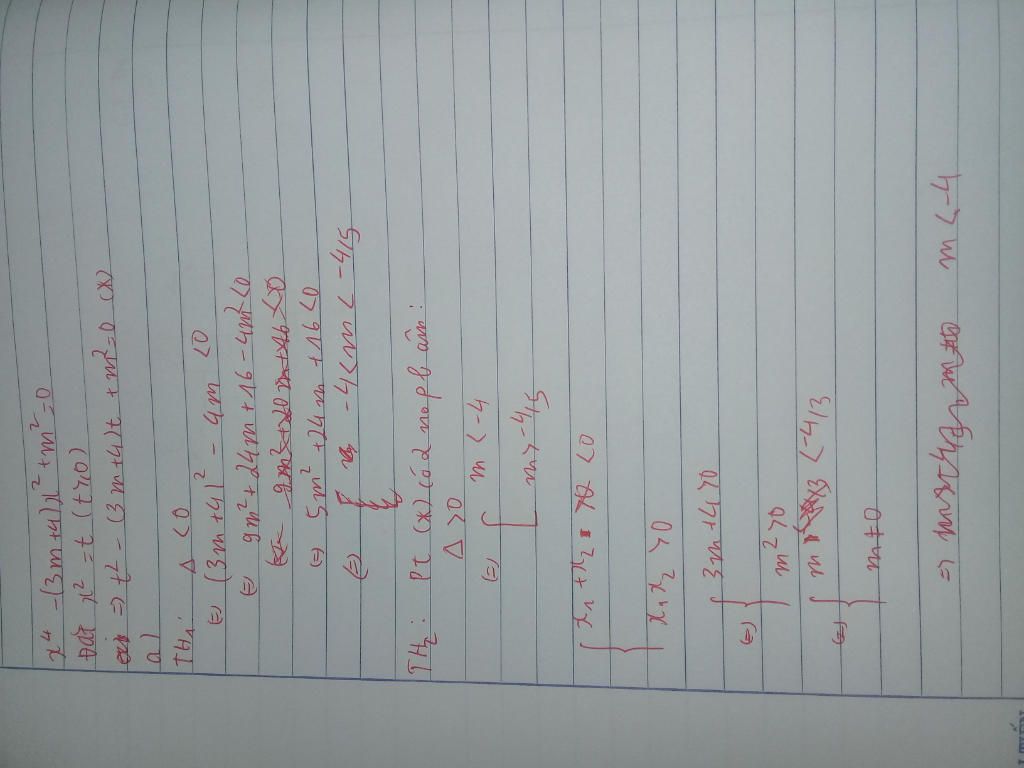 x⁴ - (3m+4)x² + m² = 0
Đặt x² = t (t>0)
=> t² - (3m+4)t + m² = 0 (x)
a)
TH₁: Δ < 0
(=) (3m+4)² - 4m < 0
(=) 9m² + 24m + 16 - 4m² < 0
(=) 5m² + 24m + 16 < 0
(=) -4 < m < -4/5
TH₂: Pt (x) có 2 no pb âm:
Δ > 0
(=) [ m < -4
m > -4/5
{ x₁ + x₂ < 0
x₁x₂ > 0
(=) { 3m+4 > 0
m² > 0
(=) { m < -4/3
m ≠ 0
=> m < -4